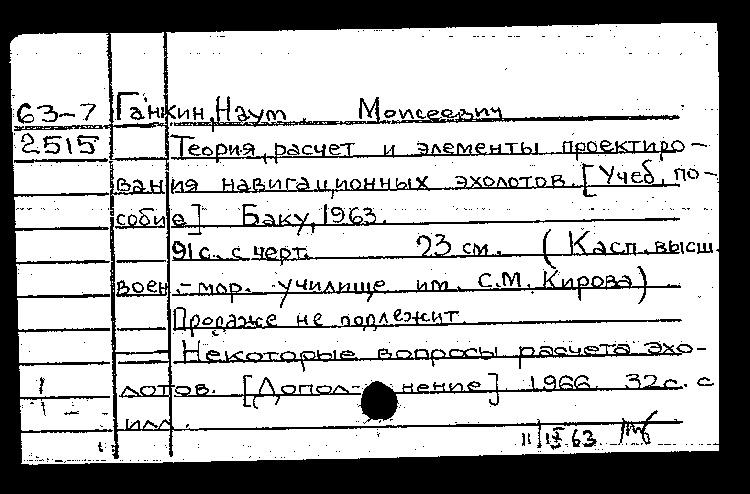 63-7 Ганкин, Наум Моисеевич
2515 Теория, расчет и элементы проектиро-
вания навигационных эхолотов. [Учеб. по-
собие] Баку, 1963.
91 с. с черт. 23 см. (Касп. высш.
воен.-мор. училище им. С.М. Кирова)
Продаже не подлежит.
— Некоторые вопросы расчета эхо-
лотов. [Дополнение] 1966. 32 с. с
илл.
11/IX 63